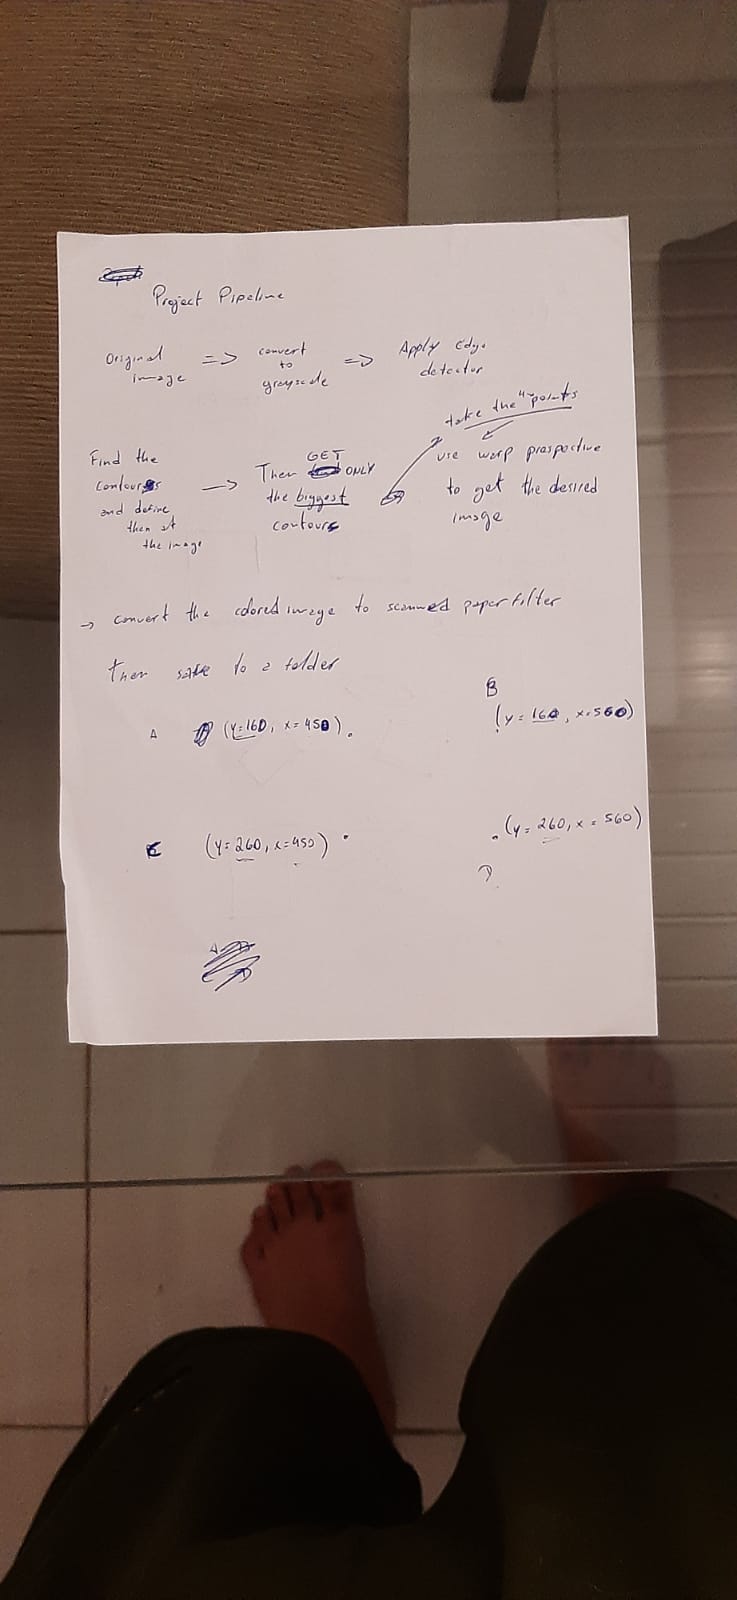 Project Pipeline
Original
image
=>
convert
to
grayscale
=>
Apply Edge
detector
Find the
contours
and define
then at
the image
→
Then GET ONLY
the biggest
contours
take the "4" points
use warp prespective
to get the desired
image
→ convert the colored image to scanned paper filter
Then save to a folder
A (y=160, x=450).
B
(y=160, x=560)
C (y=260, x=450) .
. (y=260, x=560)
D